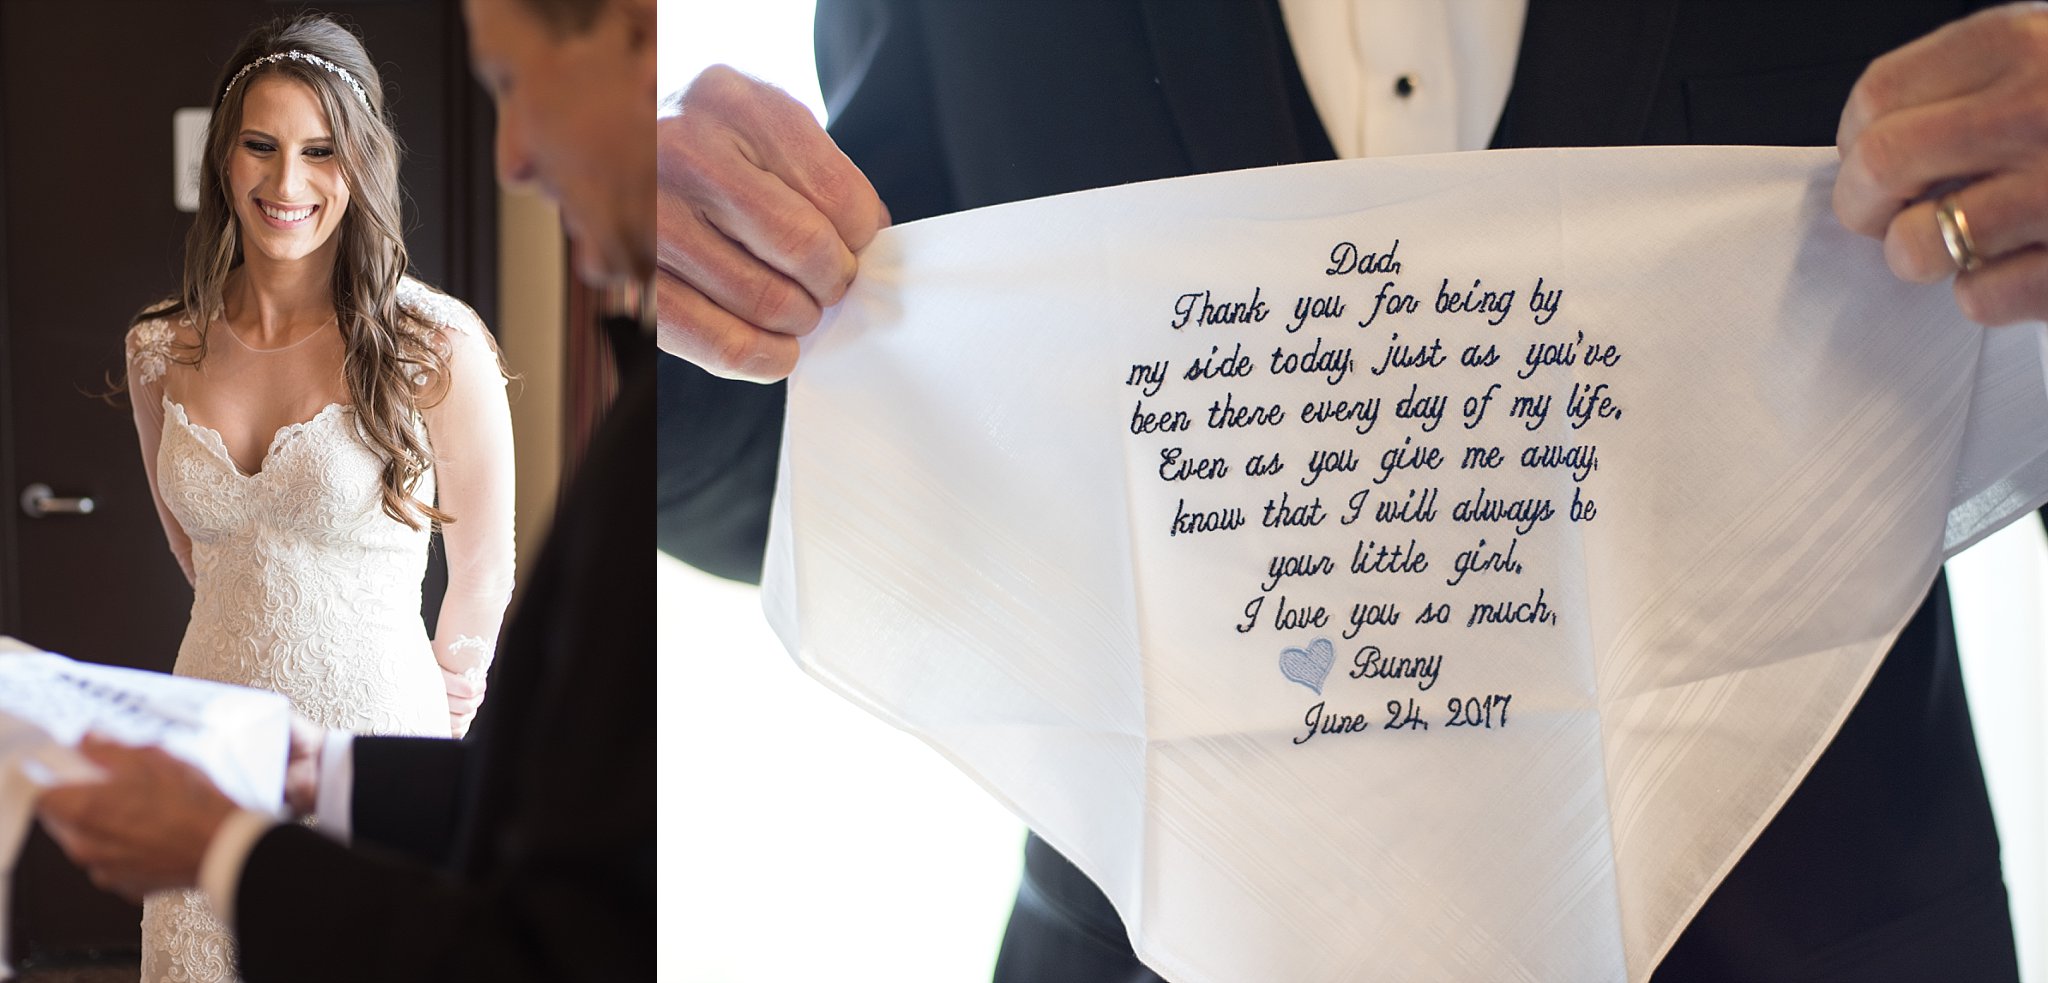 Dad,
Thank you for being by
my side today, just as you've
been there every day of my life.
Even as you give me away,
know that I will always be
your little girl.
I love you so much,
Bunny
June 24, 2017